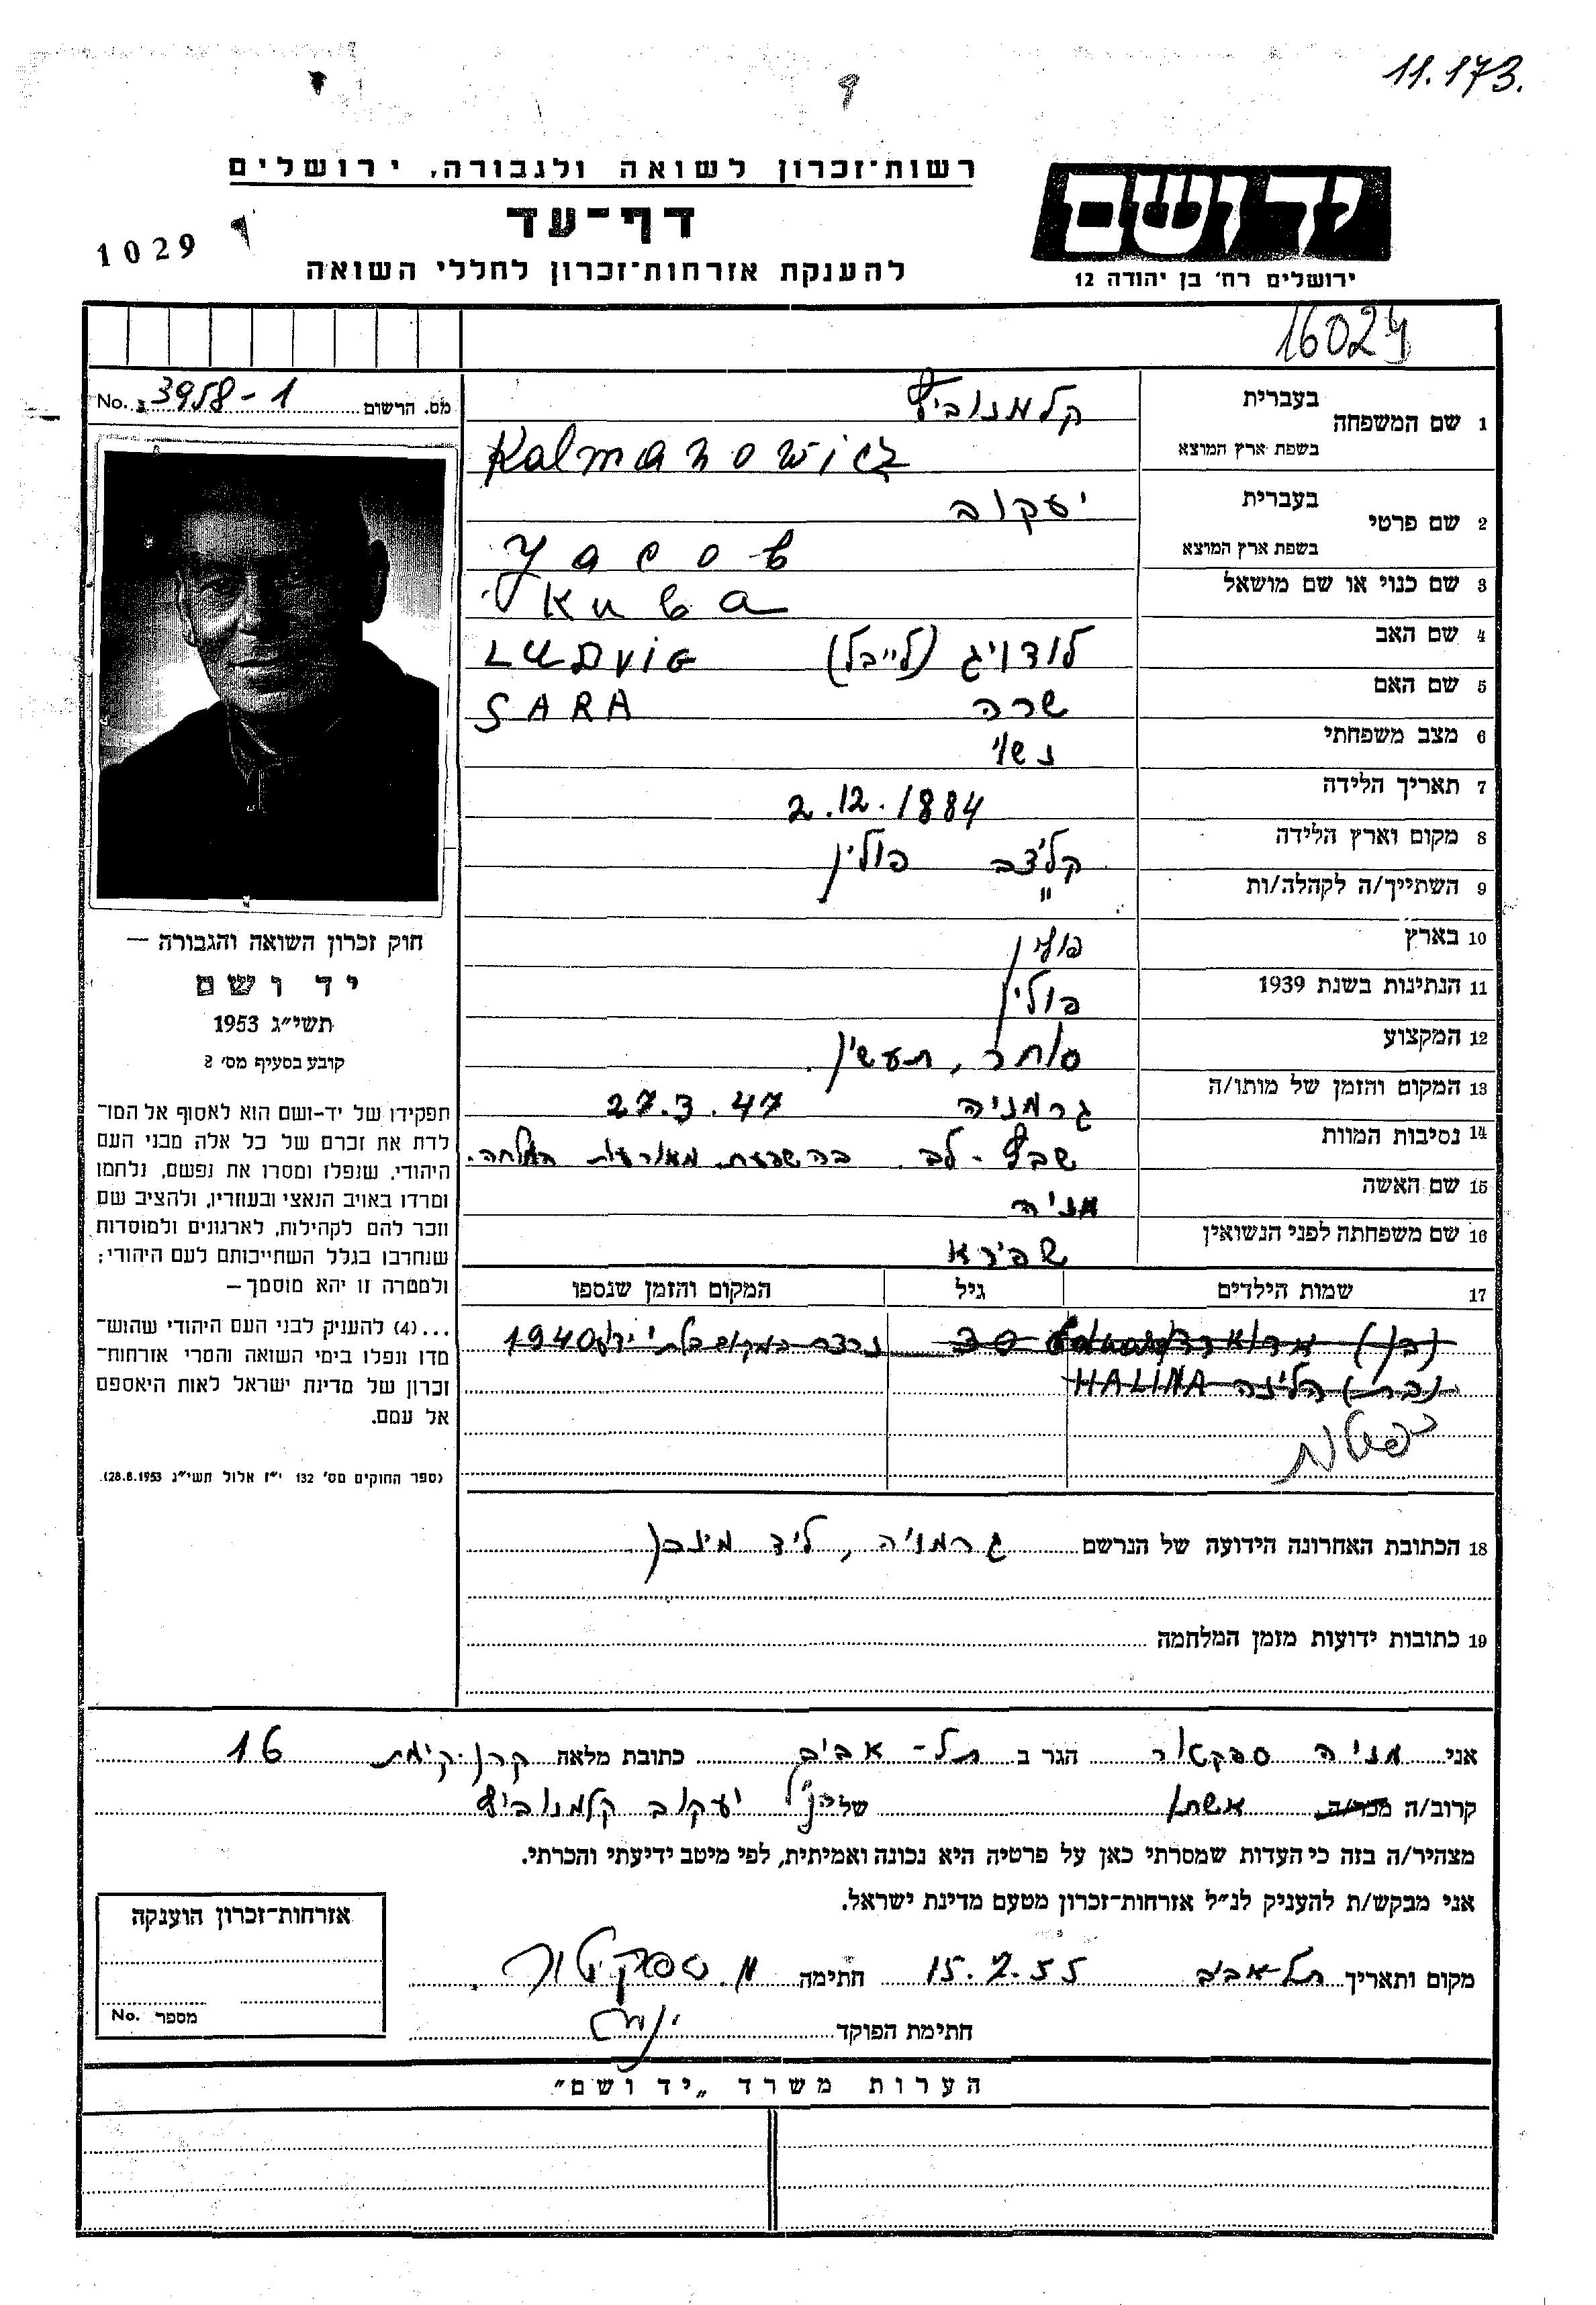 11.173.
רשות־זכרון לשואה ולגבורה, ירושלים
יד ושם
דף-עד
1029
להענקת אזרחות־זכרון לחללי השואה
ירושלים רח' בן יהודה 12
16024
מס. הרשום No. 3958-1
1 שם המשפחה בעברית קלמנוביץ
בשפת ארץ המוצא Kalmanowicz
2 שם פרטי בעברית יעקוב
בשפת ארץ המוצא Yacob
3 שם כנוי או שם מושאל Kuba
4 שם האב לודויג (לייבל) LUDVIG
5 שם האם שרה SARA
6 מצב משפחתי נשוי
7 תאריך הלידה 2.12.1884
8 מקום וארץ הלידה קלצב פולין
9 השתייך/ה לקהלה/ות "
10 בארץ פולין
11 הנתינות בשנת 1939 פולין
12 המקצוע סוחר, תעשין.
13 המקום והזמן של מותו/ה גרמניה 27.3.47
14 נסיבות המוות שבץ - לב. בהשפעת מאורעות המלחמה.
15 שם האשה מניה
16 שם משפחתה לפני הנשואין שפירא
17 שמות הילדים גיל המקום והזמן שנספו
(בן) 30 נרצח במקום בלתי ידוע 1940
הלינה HALINA
18 הכתובת האחרונה הידועה של הנרשם גרמניה, ליד מינכן.
19 כתובות ידועות מזמן המלחמה
חוק זכרון השואה והגבורה —
יד ושם
תשי"ג 1953
קובע בסעיף מס' 2
תפקידו של יד-ושם הוא לאסוף אל המו־
לדת את זכרם של כל אלה מבני העם
היהודי, שנפלו ומסרו את נפשם, נלחמו
ומרדו באויב הנאצי ובעוזריו, ולהציב שם
וזכר להם לקהילות, לארגונים ולמוסדות
שנחרבו בגלל השתייכותם לעם היהודי;
ולמטרה זו יהא מוסמך —
...(4) להעניק לבני העם היהודי שהוש־
מדו ונפלו בימי השואה והמרי אזרחות־
זכרון של מדינת ישראל לאות היאספם
אל עמם.
(ספר החוקים מס' 132 י"ז אלול תשי"ג 28.8.1953).
אני מניה ספקטור הגר ב תל-אביב כתובת מלאה קרן-קימת 16
קרוב/ה מכר/ה אשתו של הנ"ל יעקוב קלמנוביץ
מצהיר/ה בזה כי העדות שמסרתי כאן על פרטיה היא נכונה ואמיתית, לפי מיטב ידיעתי והכרתי.
אני מבקש/ת להעניק לנ"ל אזרחות־זכרון מטעם מדינת ישראל.
מקום ותאריך תל-אביב 15.2.55 חתימה מ. ספקטור.
חתימת הפוקד
אזרחות־זכרון הוענקה
מספר No.
הערות משרד „יד ושם"